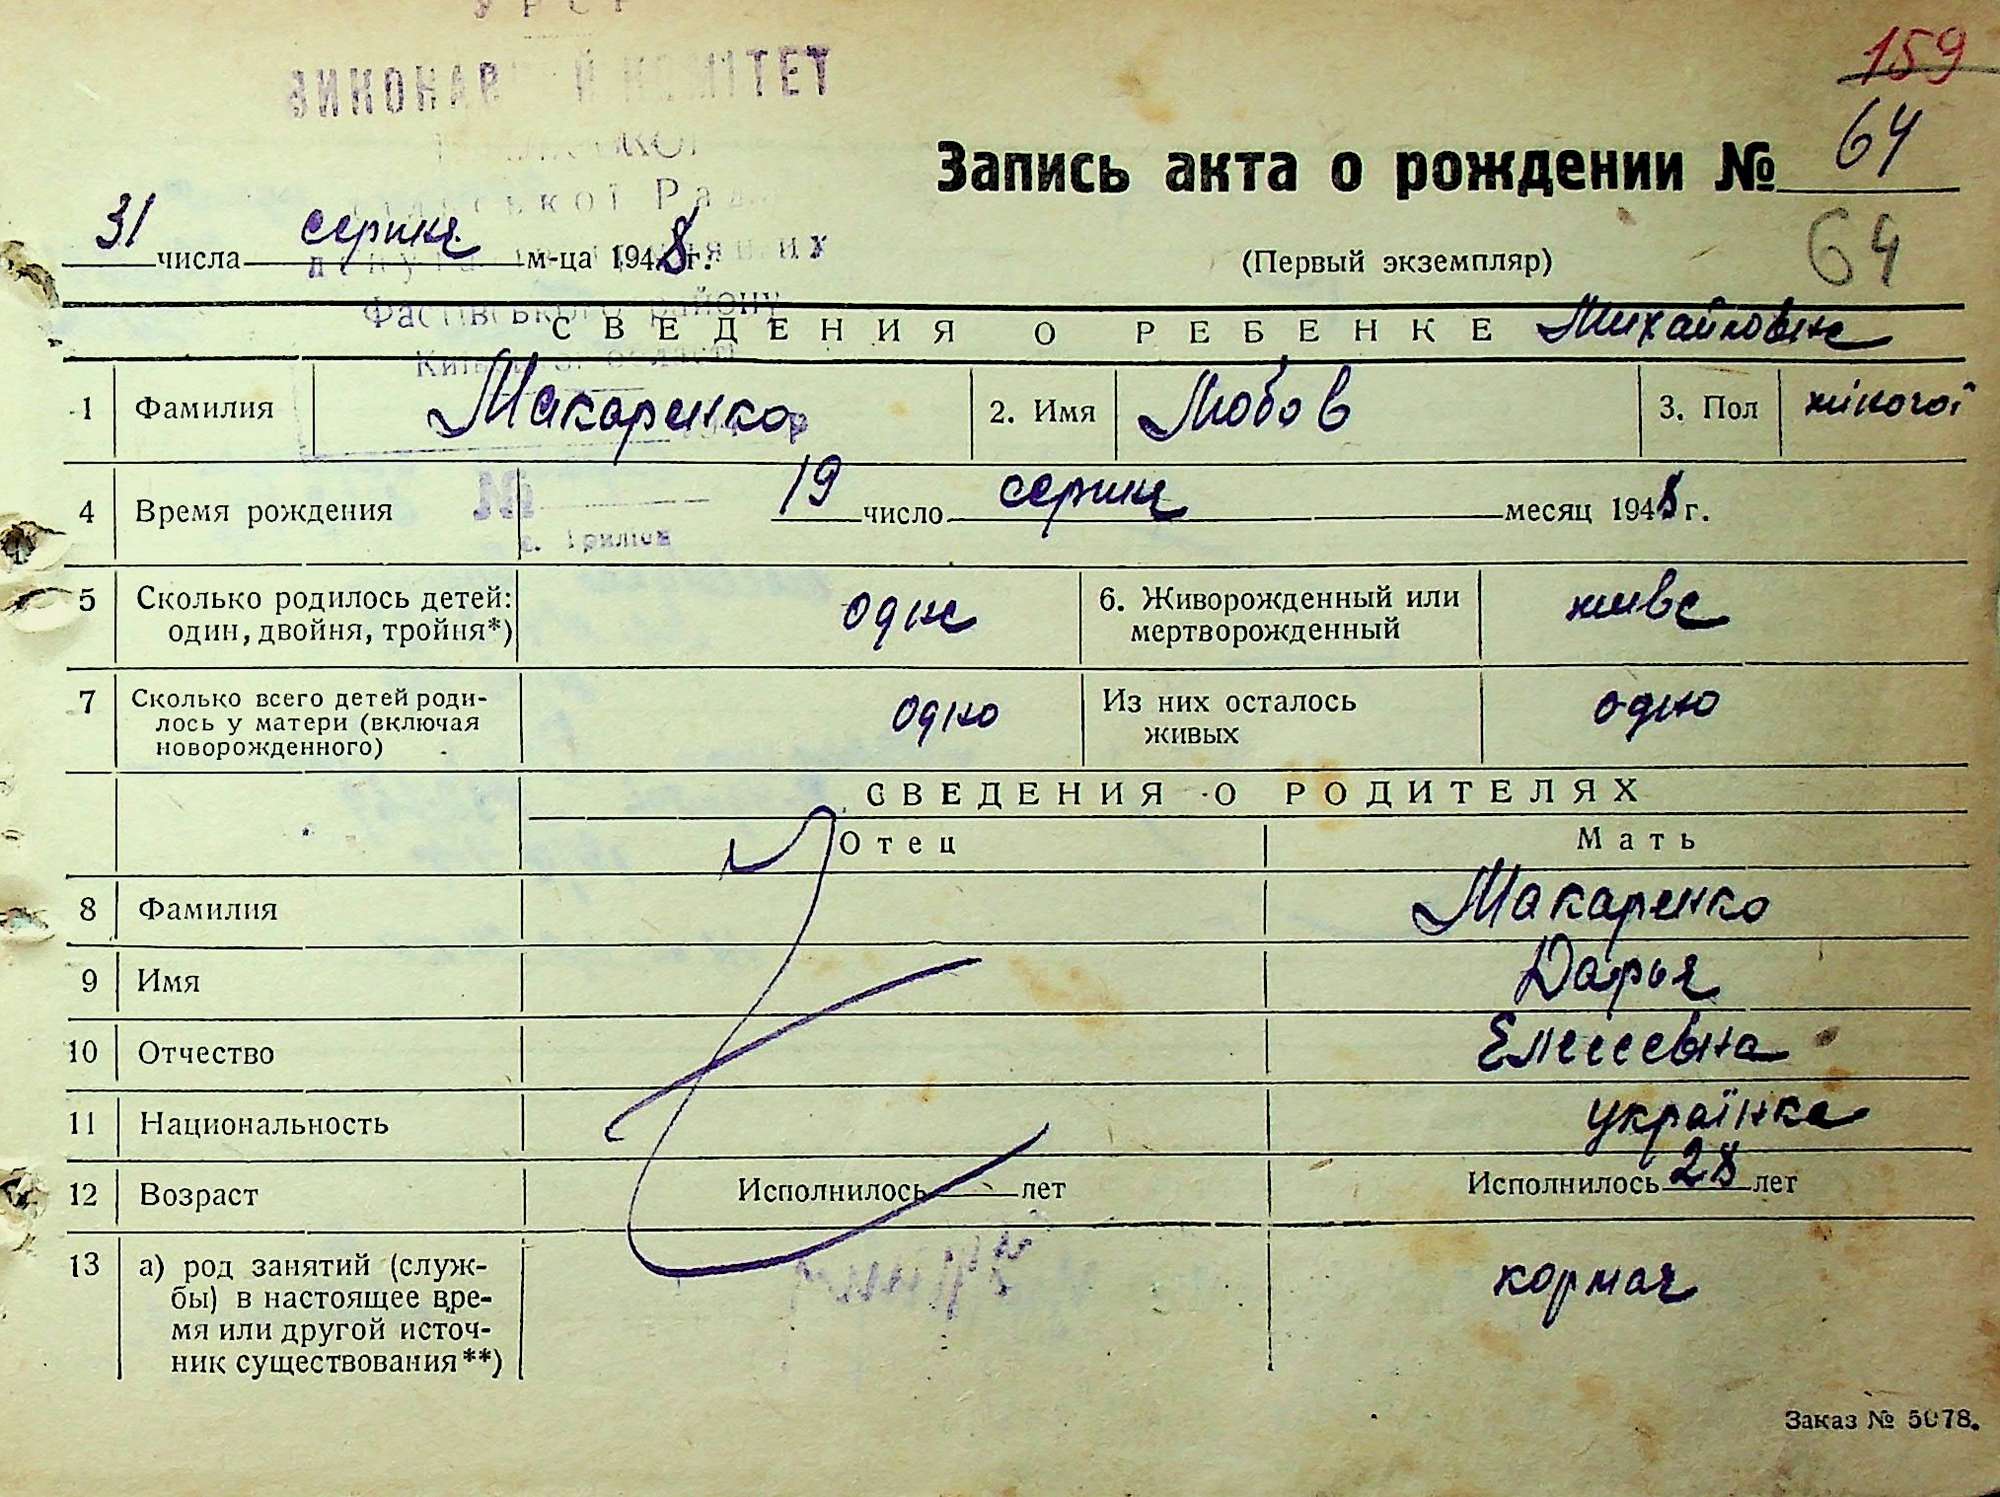 УРСР
ВИКОНАВ Й КОМІТЕТ
159
Запись акта о рождении № 64
ської Рад
31 числа серпня м-ца 1948 г.
(Первый экземпляр)
64
Фастівського району
СВЕДЕНИЯ О РЕБЕНКЕ Михайловна
1 Фамилия Макаренко 2. Имя Любов 3. Пол жіночої
4 Время рождения 19 число серпня месяц 1948 г.
5 Сколько родилось детей: один, двойня, тройня*) одне 6. Живорожденный или мертворожденный живе
7 Сколько всего детей роди-
лось у матери (включая
новорожденного) одно Из них осталось живых одно
СВЕДЕНИЯ О РОДИТЕЛЯХ
Отец Мать
8 Фамилия Макаренко
9 Имя Дарья
10 Отчество Елисеевна
11 Национальность українка
12 Возраст Исполнилось лет Исполнилось 28 лет
13 а) род занятий (служ-
бы) в настоящее вре-
мя или другой источ-
ник существования**)
Заказ № 5078.